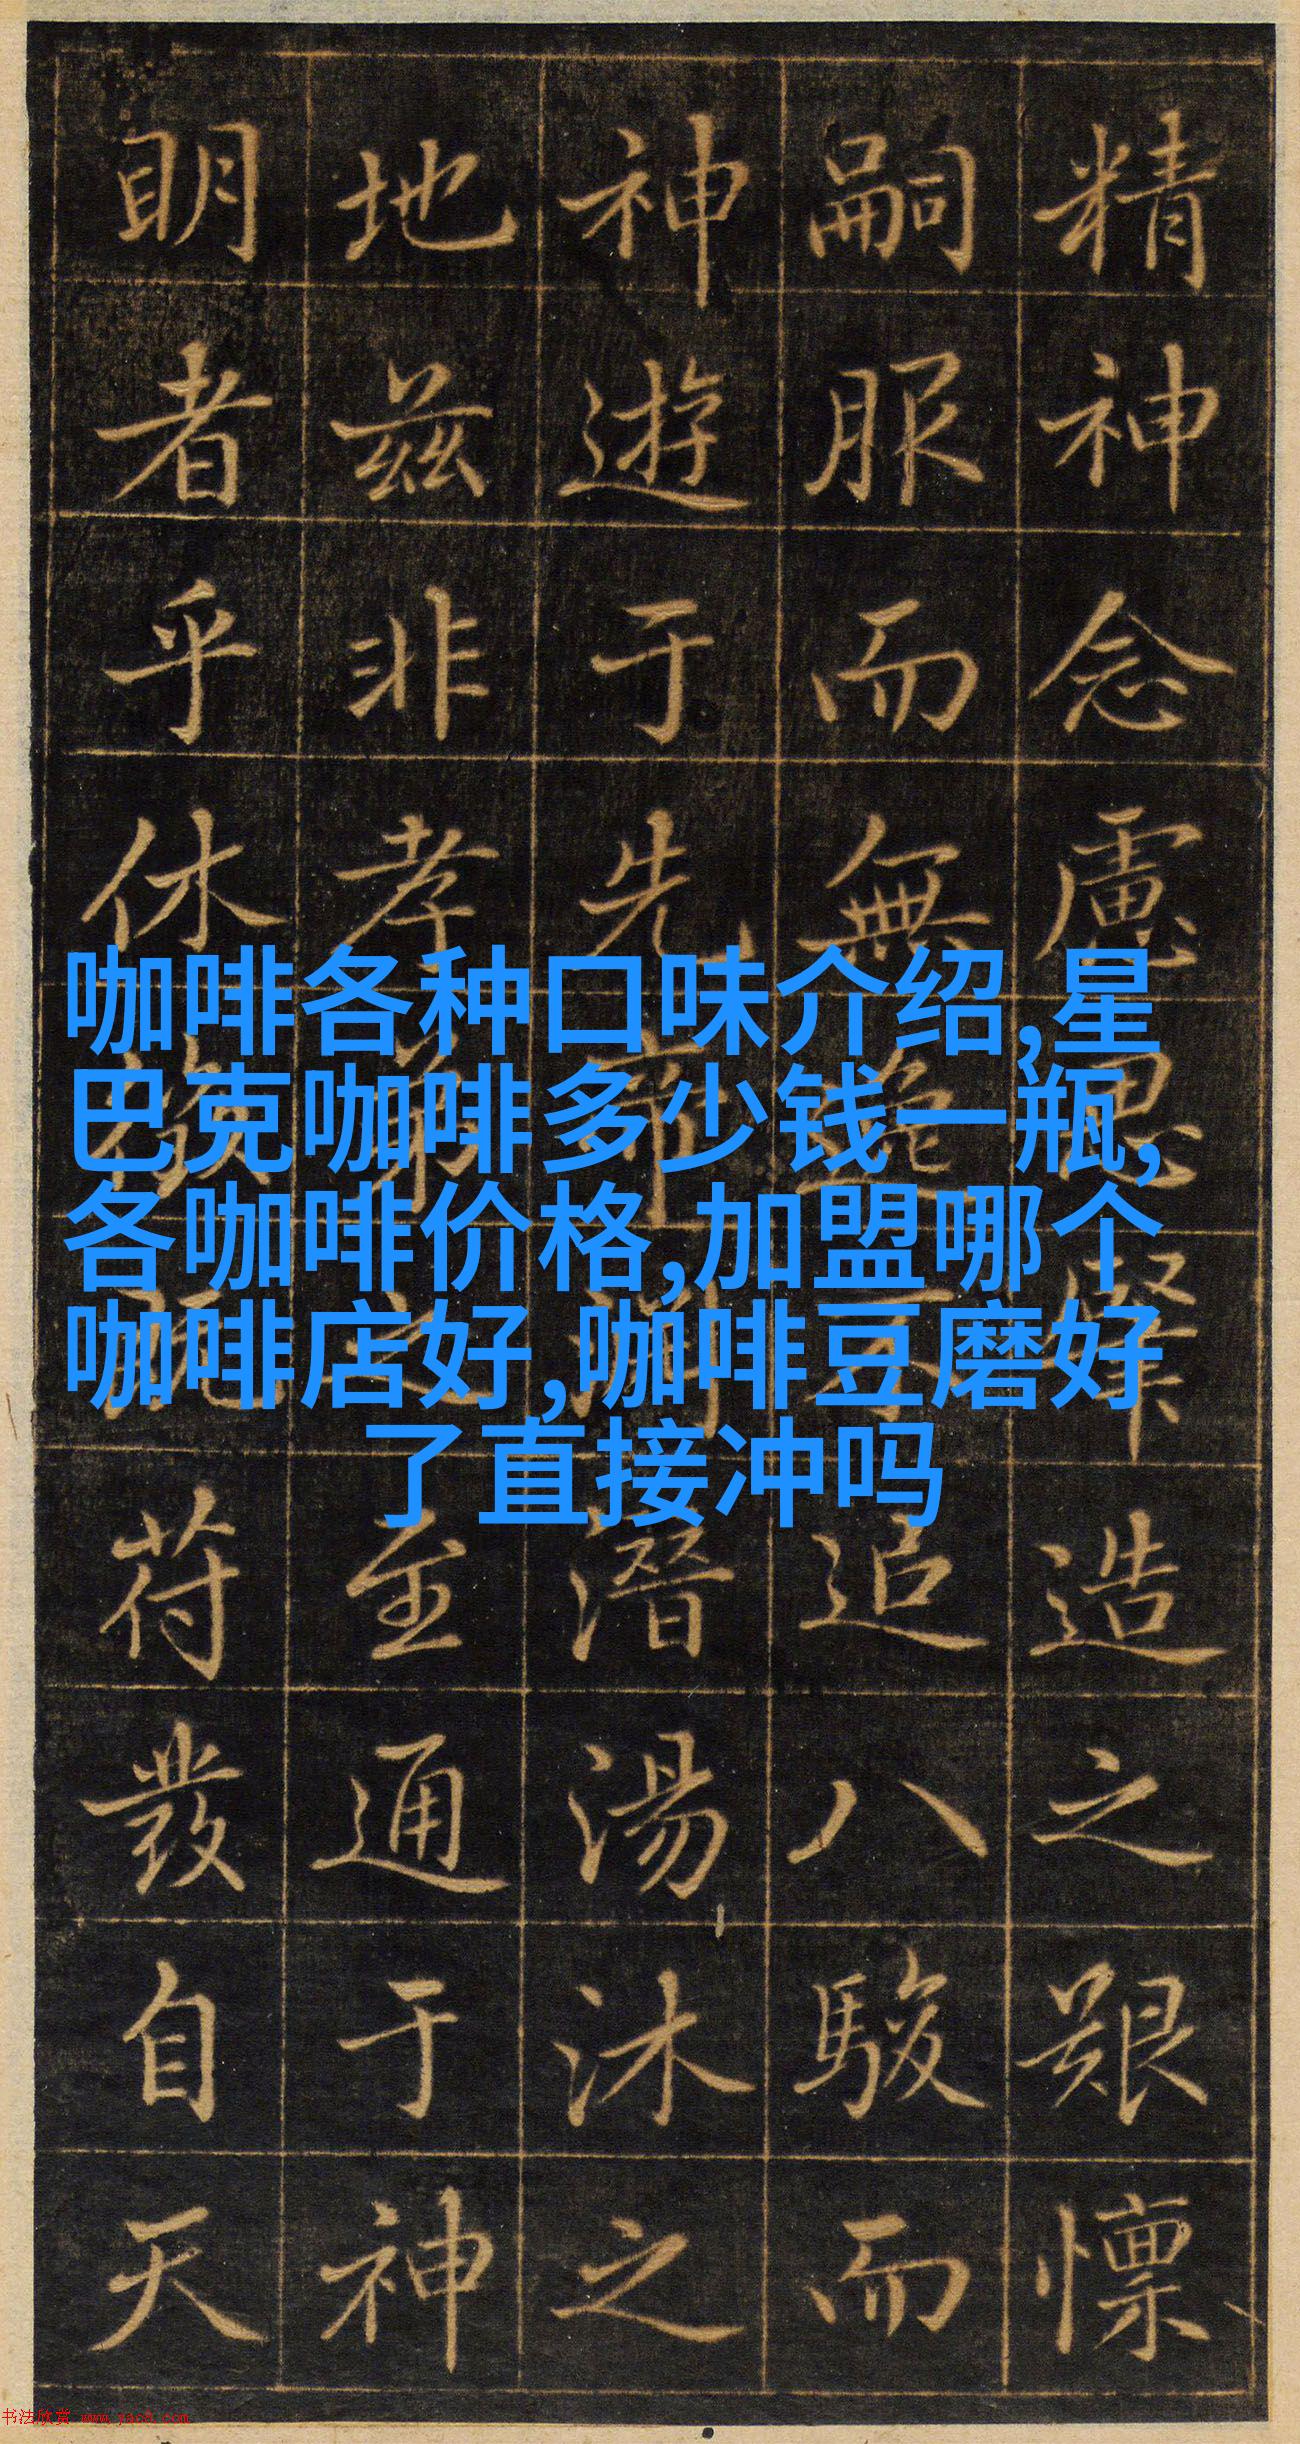 精神念慮思造之艱懍
嗣服而無逸不追八駿而
神遊于先潛湯沐之
地兹非孝弟之至通于神
明者乎休符發自天
咖啡各种口味介绍,星
巴克咖啡多少钱一瓶,
各咖啡价格,加盟哪个
咖啡店好,咖啡豆磨好
了直接冲吗
书法欣赏 www.yac8.com